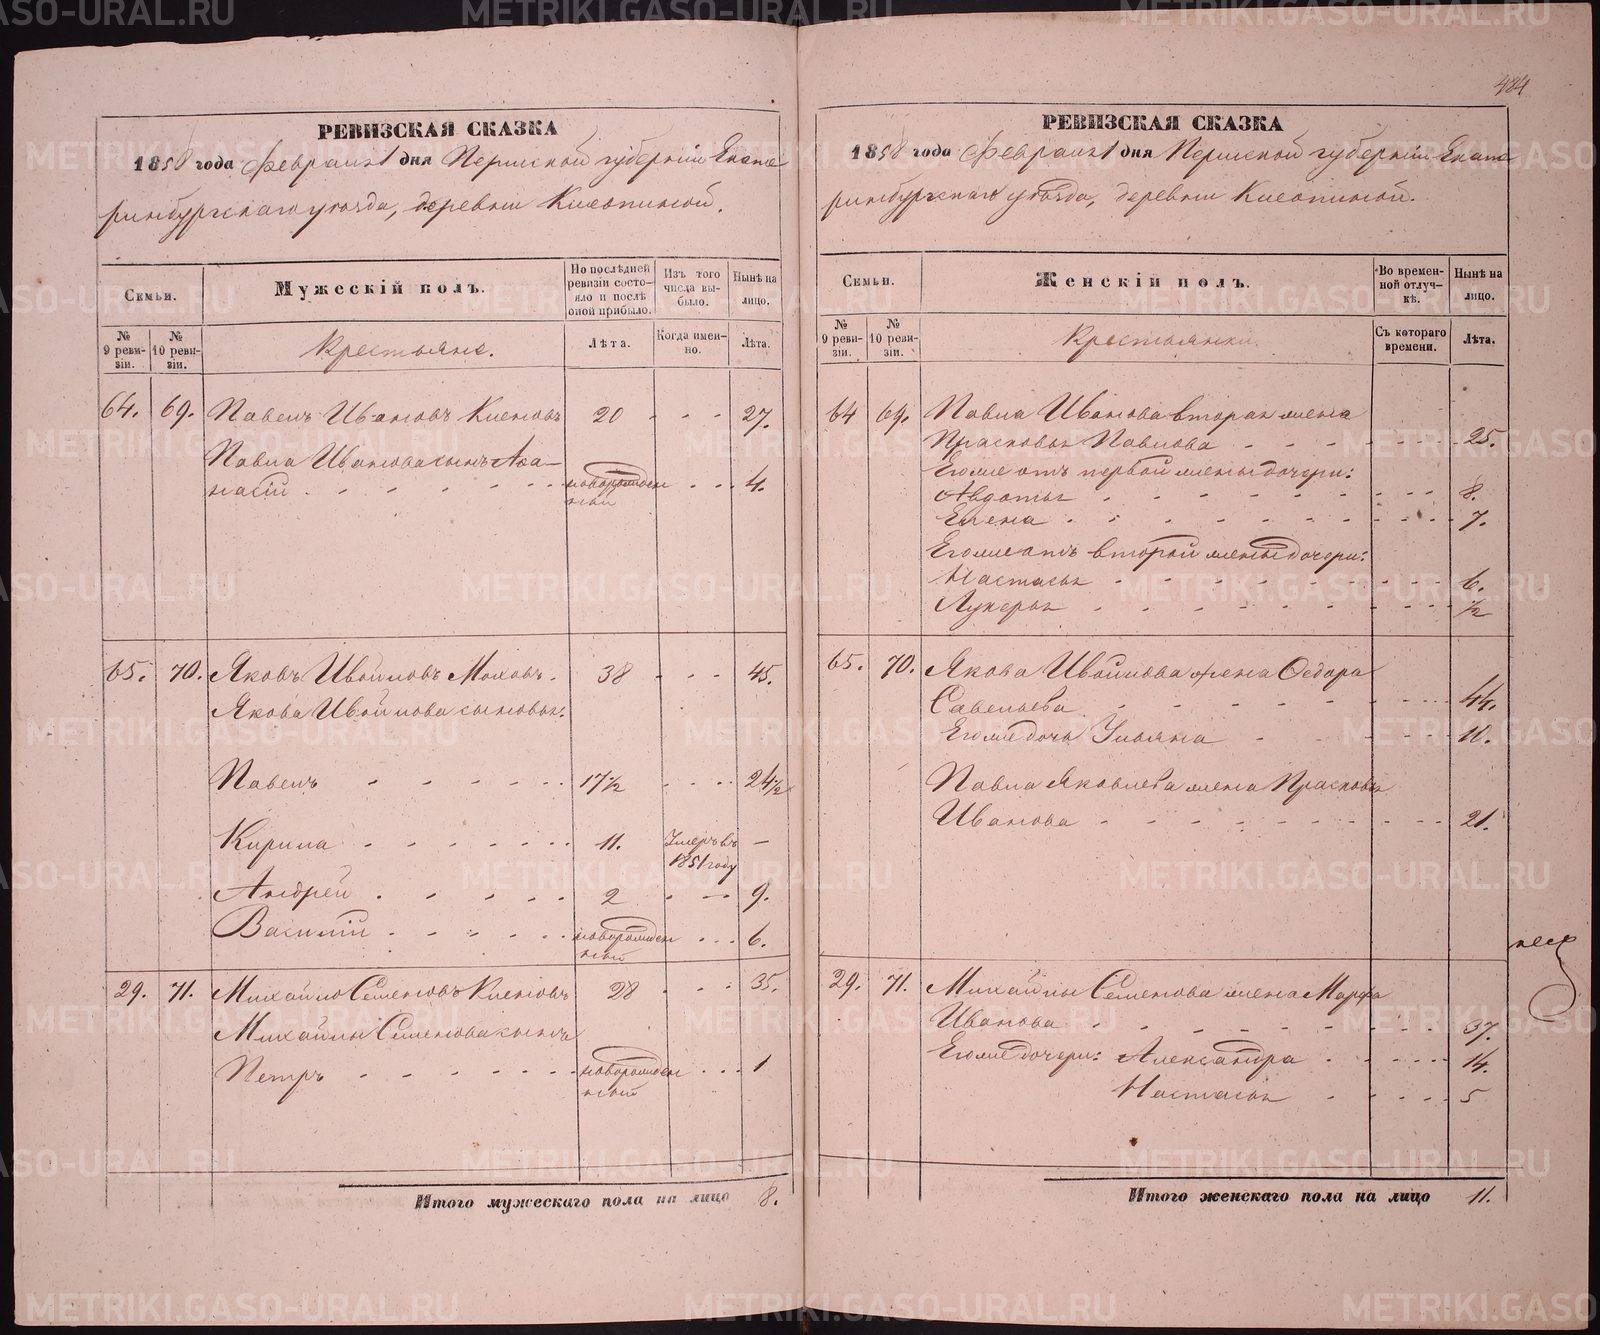 484
РЕВИЗСКАЯ СКАЗКА
1858 года Февраля 1 дня Пермской губерніи Екате
ринбургскаго уѣзда, деревни
Семьи.
Мужескій полъ.
По послѣдней ревизіи состояло и послѣ оной прибыло.
Изъ того числа выбыло.
Нынѣ на лицо.
№ 9 ревизіи.
№ 10 ревизіи.
Крестьяне.
Лѣта.
Когда именно.
Лѣта.
64. 69. Павелъ Ивановъ 20 27.
Павла Иванова сынъ Афа-
насій новорожден 4.
ный
65. 70. Яковъ 38 45.
Якова сыновья:
Павелъ 17 1/2 24 1/2
Кирила 11. Умеръ въ –
1851 году
Андрей 2 9.
Василій новорожден 6.
ный
29. 71. Михайло Семеновъ 28 35.
Михайлы Семенова сынъ
Петръ новорожден 1
ный
Итого мужескаго пола на лицо 8.
РЕВИЗСКАЯ СКАЗКА
1858 года Февраля 1 дня Пермской губерніи Екате
ринбургскаго уѣзда, деревни
Семьи.
Женскій полъ.
Во временной отлучкѣ.
Нынѣ на лицо.
№ 9 ревизіи.
№ 10 ревизіи.
Крестьянки.
Съ котораго времени.
Лѣта.
64 69. Павла Иванова вторая жена
Прасковья Павлова 25.
Его же отъ первой жены дочери:
Авдотья 8.
Елена 7.
Его же отъ второй жены дочери:
Настасья 6.
Лукерья 1/2
65. 70. Якова жена Федора
Савельева 44.
Его же дочь Ульяна 11.
Павла Яковлева жена Прасковья
Иванова 21.
29. 71. Михайлы Семенова жена Марфа
Иванова 37.
Его же дочери: Александра 14.
Настасья 5
Итого женскаго пола на лицо 11.
METRIKI.GASO-URAL.RU